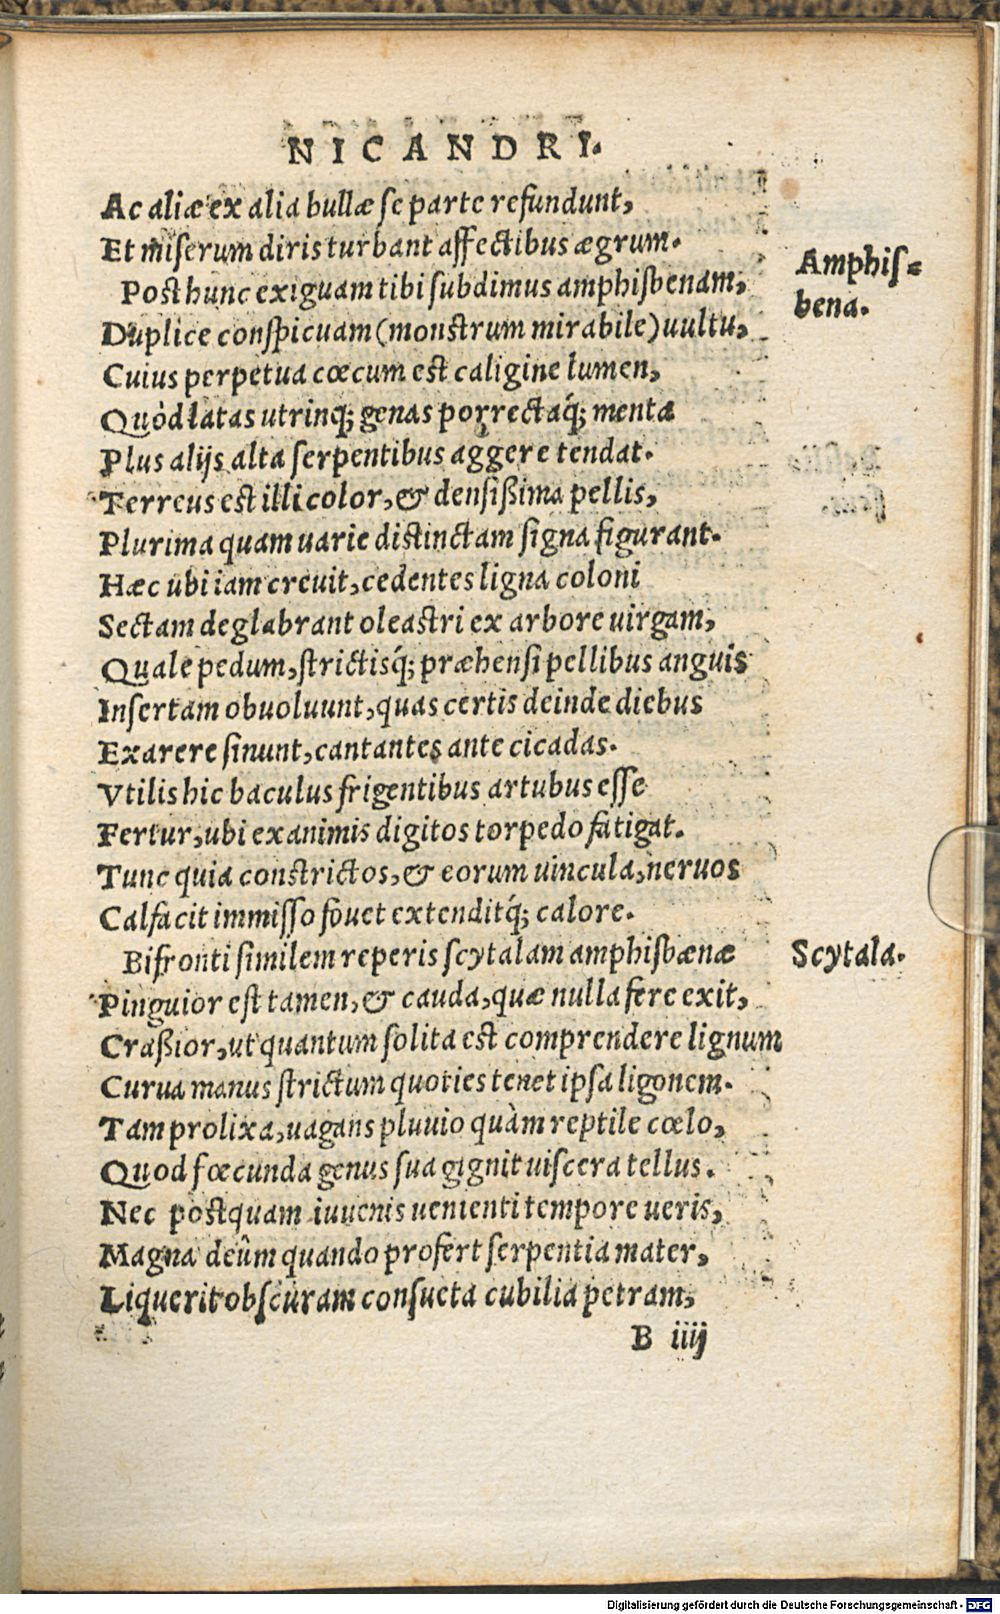 NICANDRI.
Ac aliæ ex alia bullæ se parte refundunt,
Et miserum diris turbant affectibus ægrum.
Post hunc exiguam tibi subdimus amphisbenam,
Amphis=
bena.
Duplice conspicuam (monstrum mirabile) uultu,
Cuius perpetua cœcum est caligine lumen,
Quòd latas utrinq; genas porrectaq́; menta
Plus alijs alta serpentibus aggere tendat.
Terreus est illi color, & densißima pellis,
Plurima quam uarie distinctam signa figurant.
Hæc ubi iam creuit, cedentes ligna coloni
Sectam deglabrant oleastri ex arbore uirgam,
Quale pedum, strictisq́; præhensi pellibus anguis
Insertam obuoluunt, quas certis deinde diebus
Exarere sinunt, cantantes ante cicadas.
Vtilis hic baculus frigentibus artubus esse
Fertur, ubi exanimis digitos torpedo fatigat.
Tunc quia constrictos, & eorum uincula, neruos
Calfacit immisso fouet extenditq́; calore.
Bifronti similem reperis scytalam amphisbænæ
Scytala.
Pinguior est tamen, & cauda, quæ nulla fere exit,
Craßior, ut quantum solita est comprendere lignum
Curua manus strictum quoties tenet ipsa ligonem.
Tam prolixa, uagans pluuio quàm reptile cœlo,
Quod fœcunda genus sua gignit uiscera tellus.
Nec postquam iuuenis uenienti tempore ueris,
Magna deûm quando profert serpentia mater,
Liquerit obscuram consueta cubilia petram,
B iiij
Digitalisierung gefördert durch die Deutsche Forschungsgemeinschaft - DFG